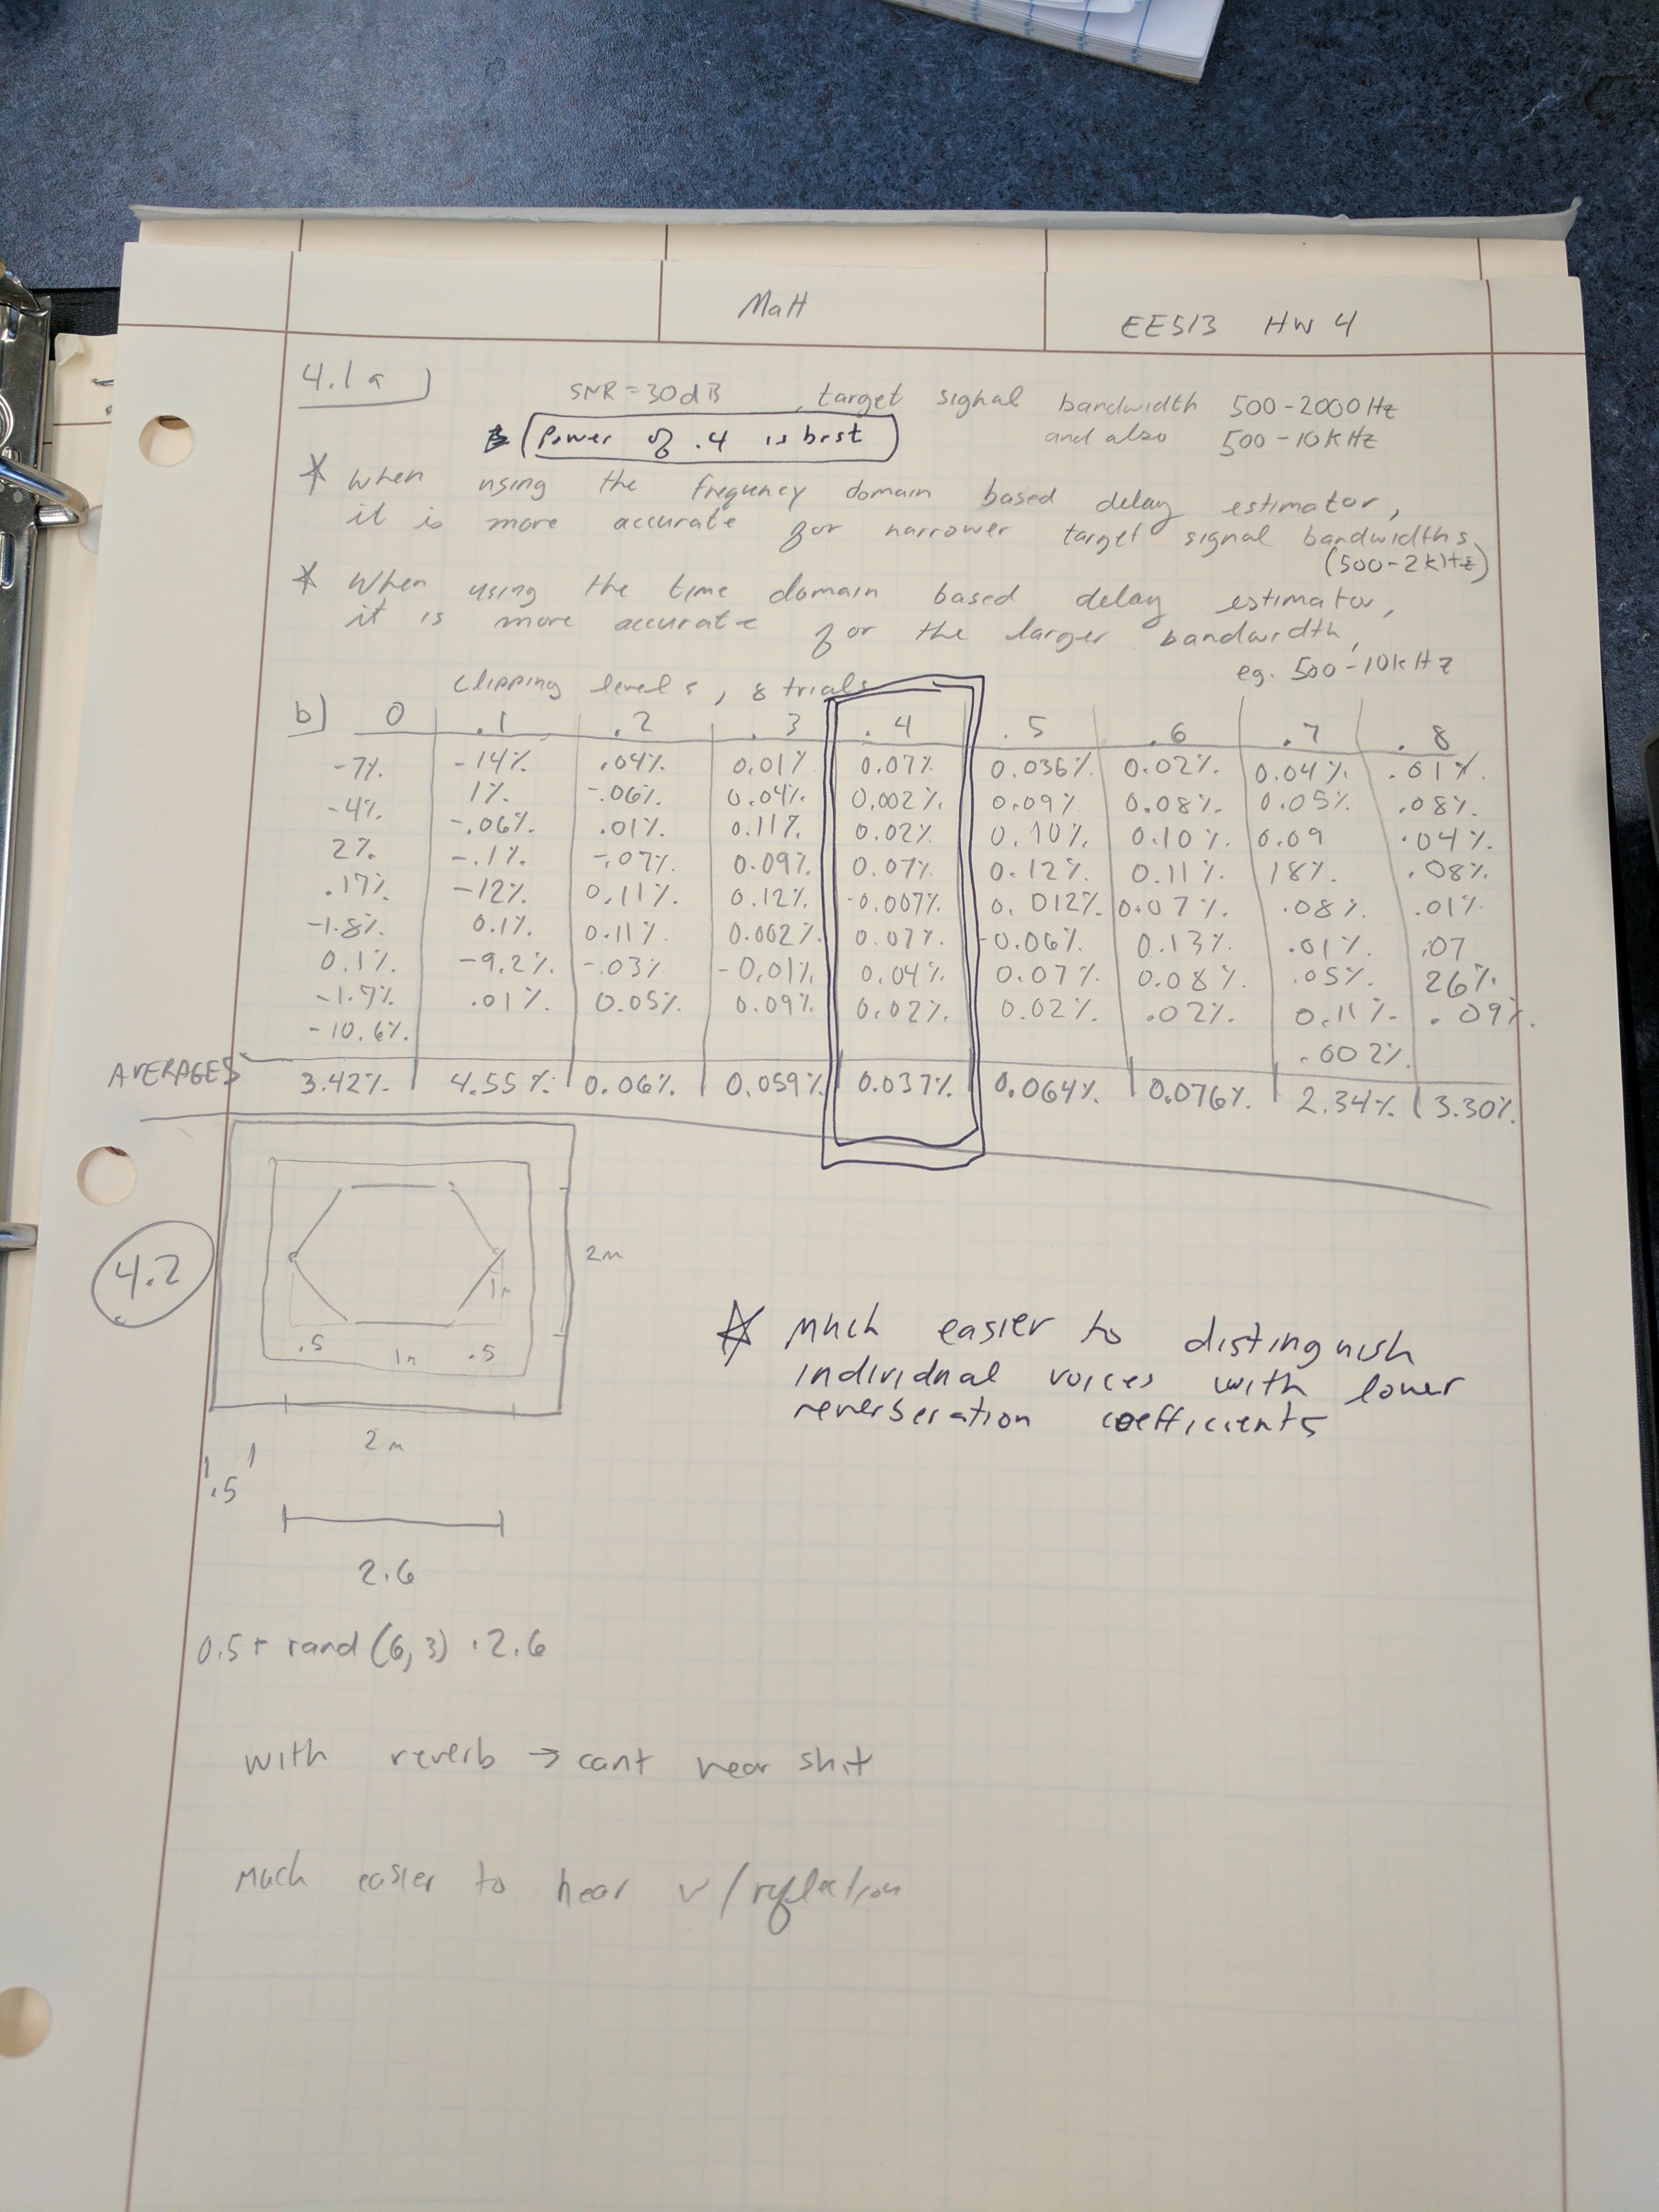 Matt
EE513 HW 4
4.1a)
SNR=30dB , target signal bandwidth 500-2000Hz
Power of .4 is best and also 500-10KHz
* When using the frequency domain based delay estimator,
it is more accurate for narrower target signal bandwidths
(500-2kHz)
* When using the time domain based delay estimator,
it is more accurate for the larger bandwidth,
eg. 500-10kHz
clipping levels, 8 trials
b) 0 .1 .2 .3 .4 .5 .6 .7 .8
-7% -14% .04% 0.01% 0.07% 0.036% 0.02% 0.04% .01%
-4% 1% -.06% 0.04% 0.002% 0.09% 0.08% 0.05% .08%
2% -.06% .01% 0.11% 0.02% 0.10% 0.10% 0.09 .04%
.17% -.1% -.07% 0.09% 0.07% 0.12% 0.11% 18% .08%
-1.8% -12% 0.11% 0.12% -0.007% 0.012% 0.07% .08% .01%
0.1% 0.1% 0.11% 0.002% 0.07% -0.06% 0.13% .01% .07
-1.7% -9.2% -.03% -0.01% 0.04% 0.07% 0.08% .05% 26%
-10.6% .01% 0.05% 0.09% 0.02% 0.02% .02% 0.11% .09%
.002%
AVERAGES 3.42% 4.55% 0.06% 0.059% 0.037% 0.064% 0.076% 2.34% 3.30%
4.2
2m
1m
.5 1m .5
2m
.5
2.6
* Much easier to distinguish
individual voices with lower
reverberation coefficients
0.5+ rand(6,3) ·2.6
with reverb → cant hear shit
Much easier to hear w/reflection